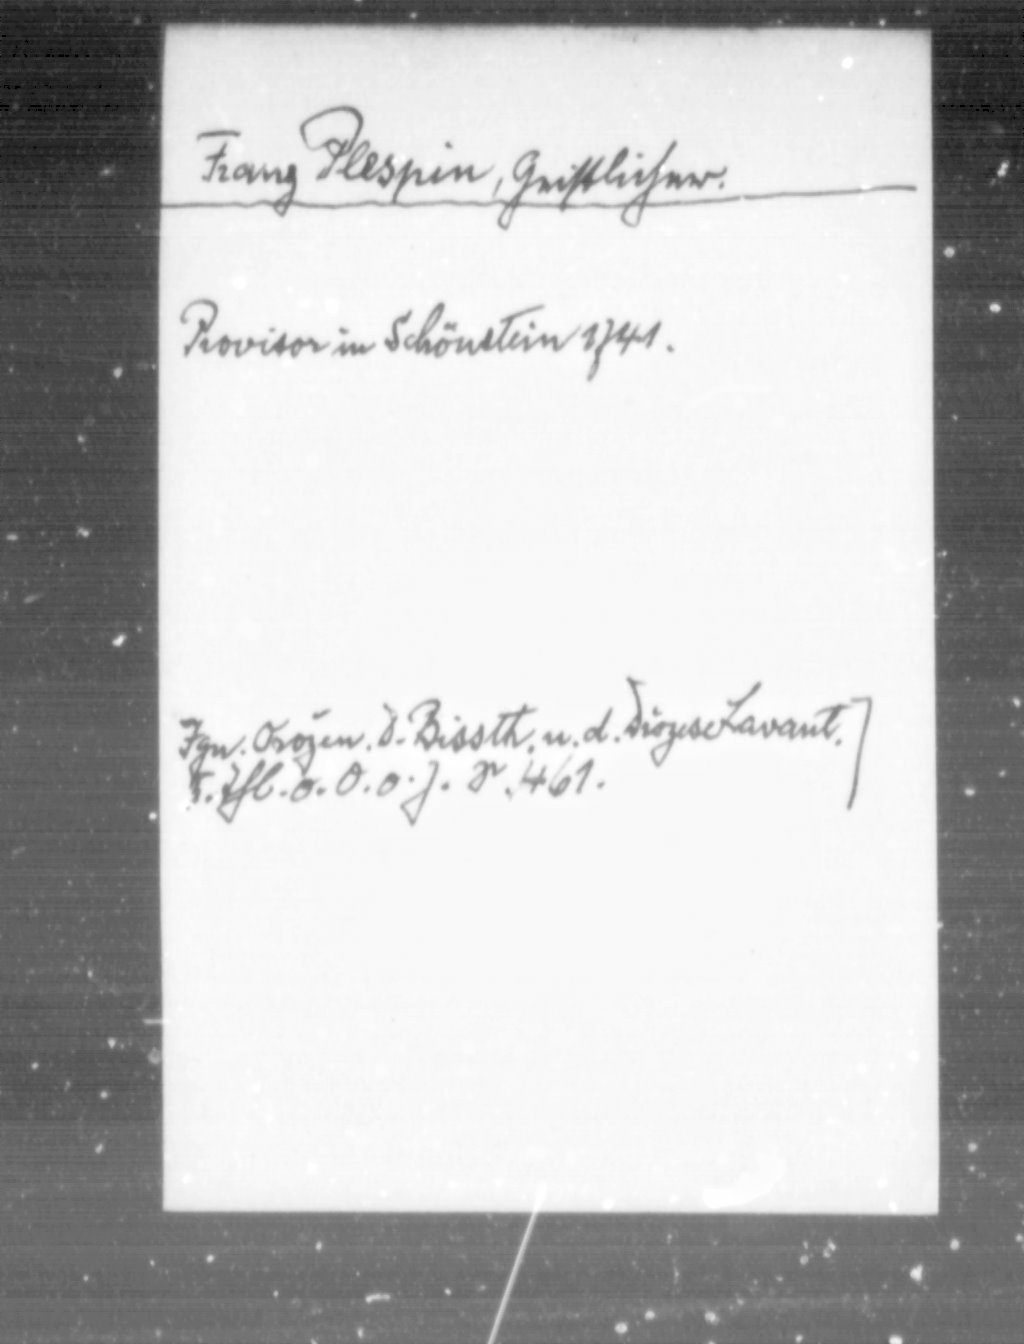 Franz Plespin, Geistlicher.
Provisor in Schönstein 1741.
Ign. Orožen. D. Bissth. u. d. Diözese Lavant.]
V. Thl. o. O. o. J. S. 461.